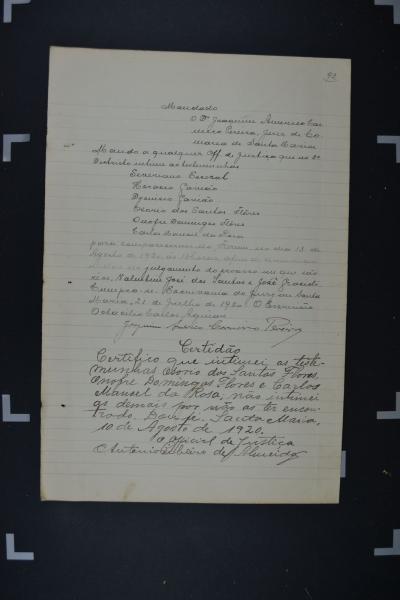 92
Mandado
O Dr. Joaquim Americo Car
neiro Pereira, Juiz de Co
marca de Santa Maria
Mando a qualquer Off. de Justiça que no 2º
Districto intime as testemunhas
Horacio Gamão
Osorio dos Santos Flores
Onofre Domingos Flores
Carlos Manoel da Rosa
para comparecerem no Forum no dia 13 de
Agosto de 1920, ás
julgamento do processo em que são
réos, José dos Santos e João
Cumpra-se. Santa
Maria, 21 de Julho de 1920. O Escrivão
Octacilio Carlos
Joaquim Americo Carneiro Pereira
Certidão
Certifico que intimei as teste-
munhas Osorio dos Santos Flores,
Onofre Domingos Flores e Carlos
Manuel da Rosa, não intimei
as demais por não as ter encon-
trado. Dou fé. Santa Maria,
10 de Agosto de 1920.
O Oficial de Justiça
Antonio Ribeiro de Almeida